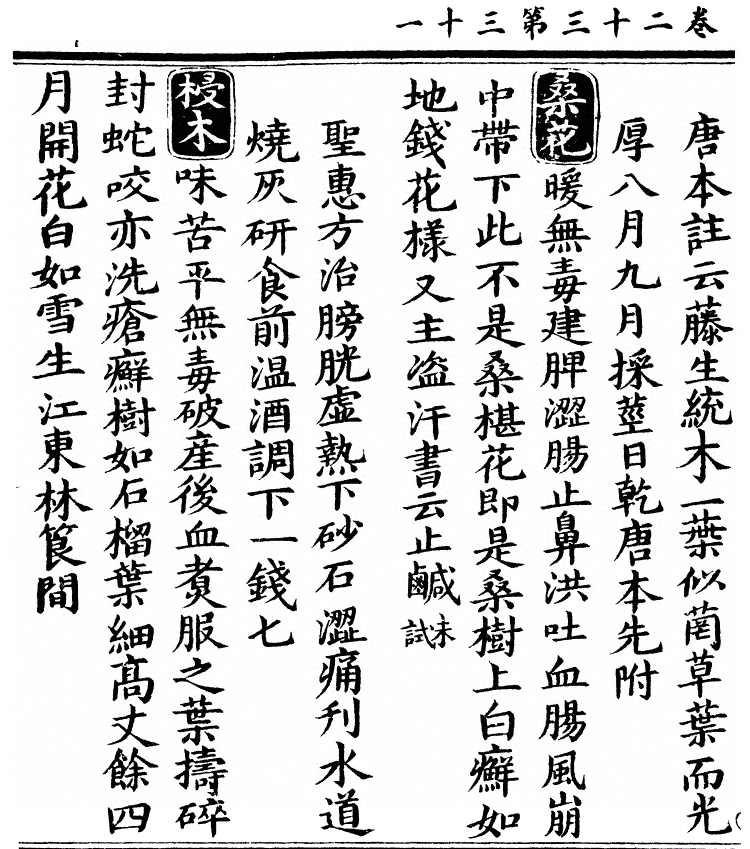 卷二十三第三十一
唐本註云藤生統木一葉似蔄草葉而光
厚八月九月採莖日乾唐本先附
桑花暖無毒建脾澀腸止鼻洪吐血腸風崩
中帶下此不是桑椹花即是桑樹上白癬如
地錢花樣又主盗汗書云止鹹未試
聖惠方治膀胱虛熱下砂石澀痛利水道
燒灰研食前温酒調下一錢七
梫木味苦平無毒破産後血煮服之葉擣碎
封蛇咬亦洗瘡癬樹如石榴葉細髙丈餘四
月開花白如雪生江東林筤間